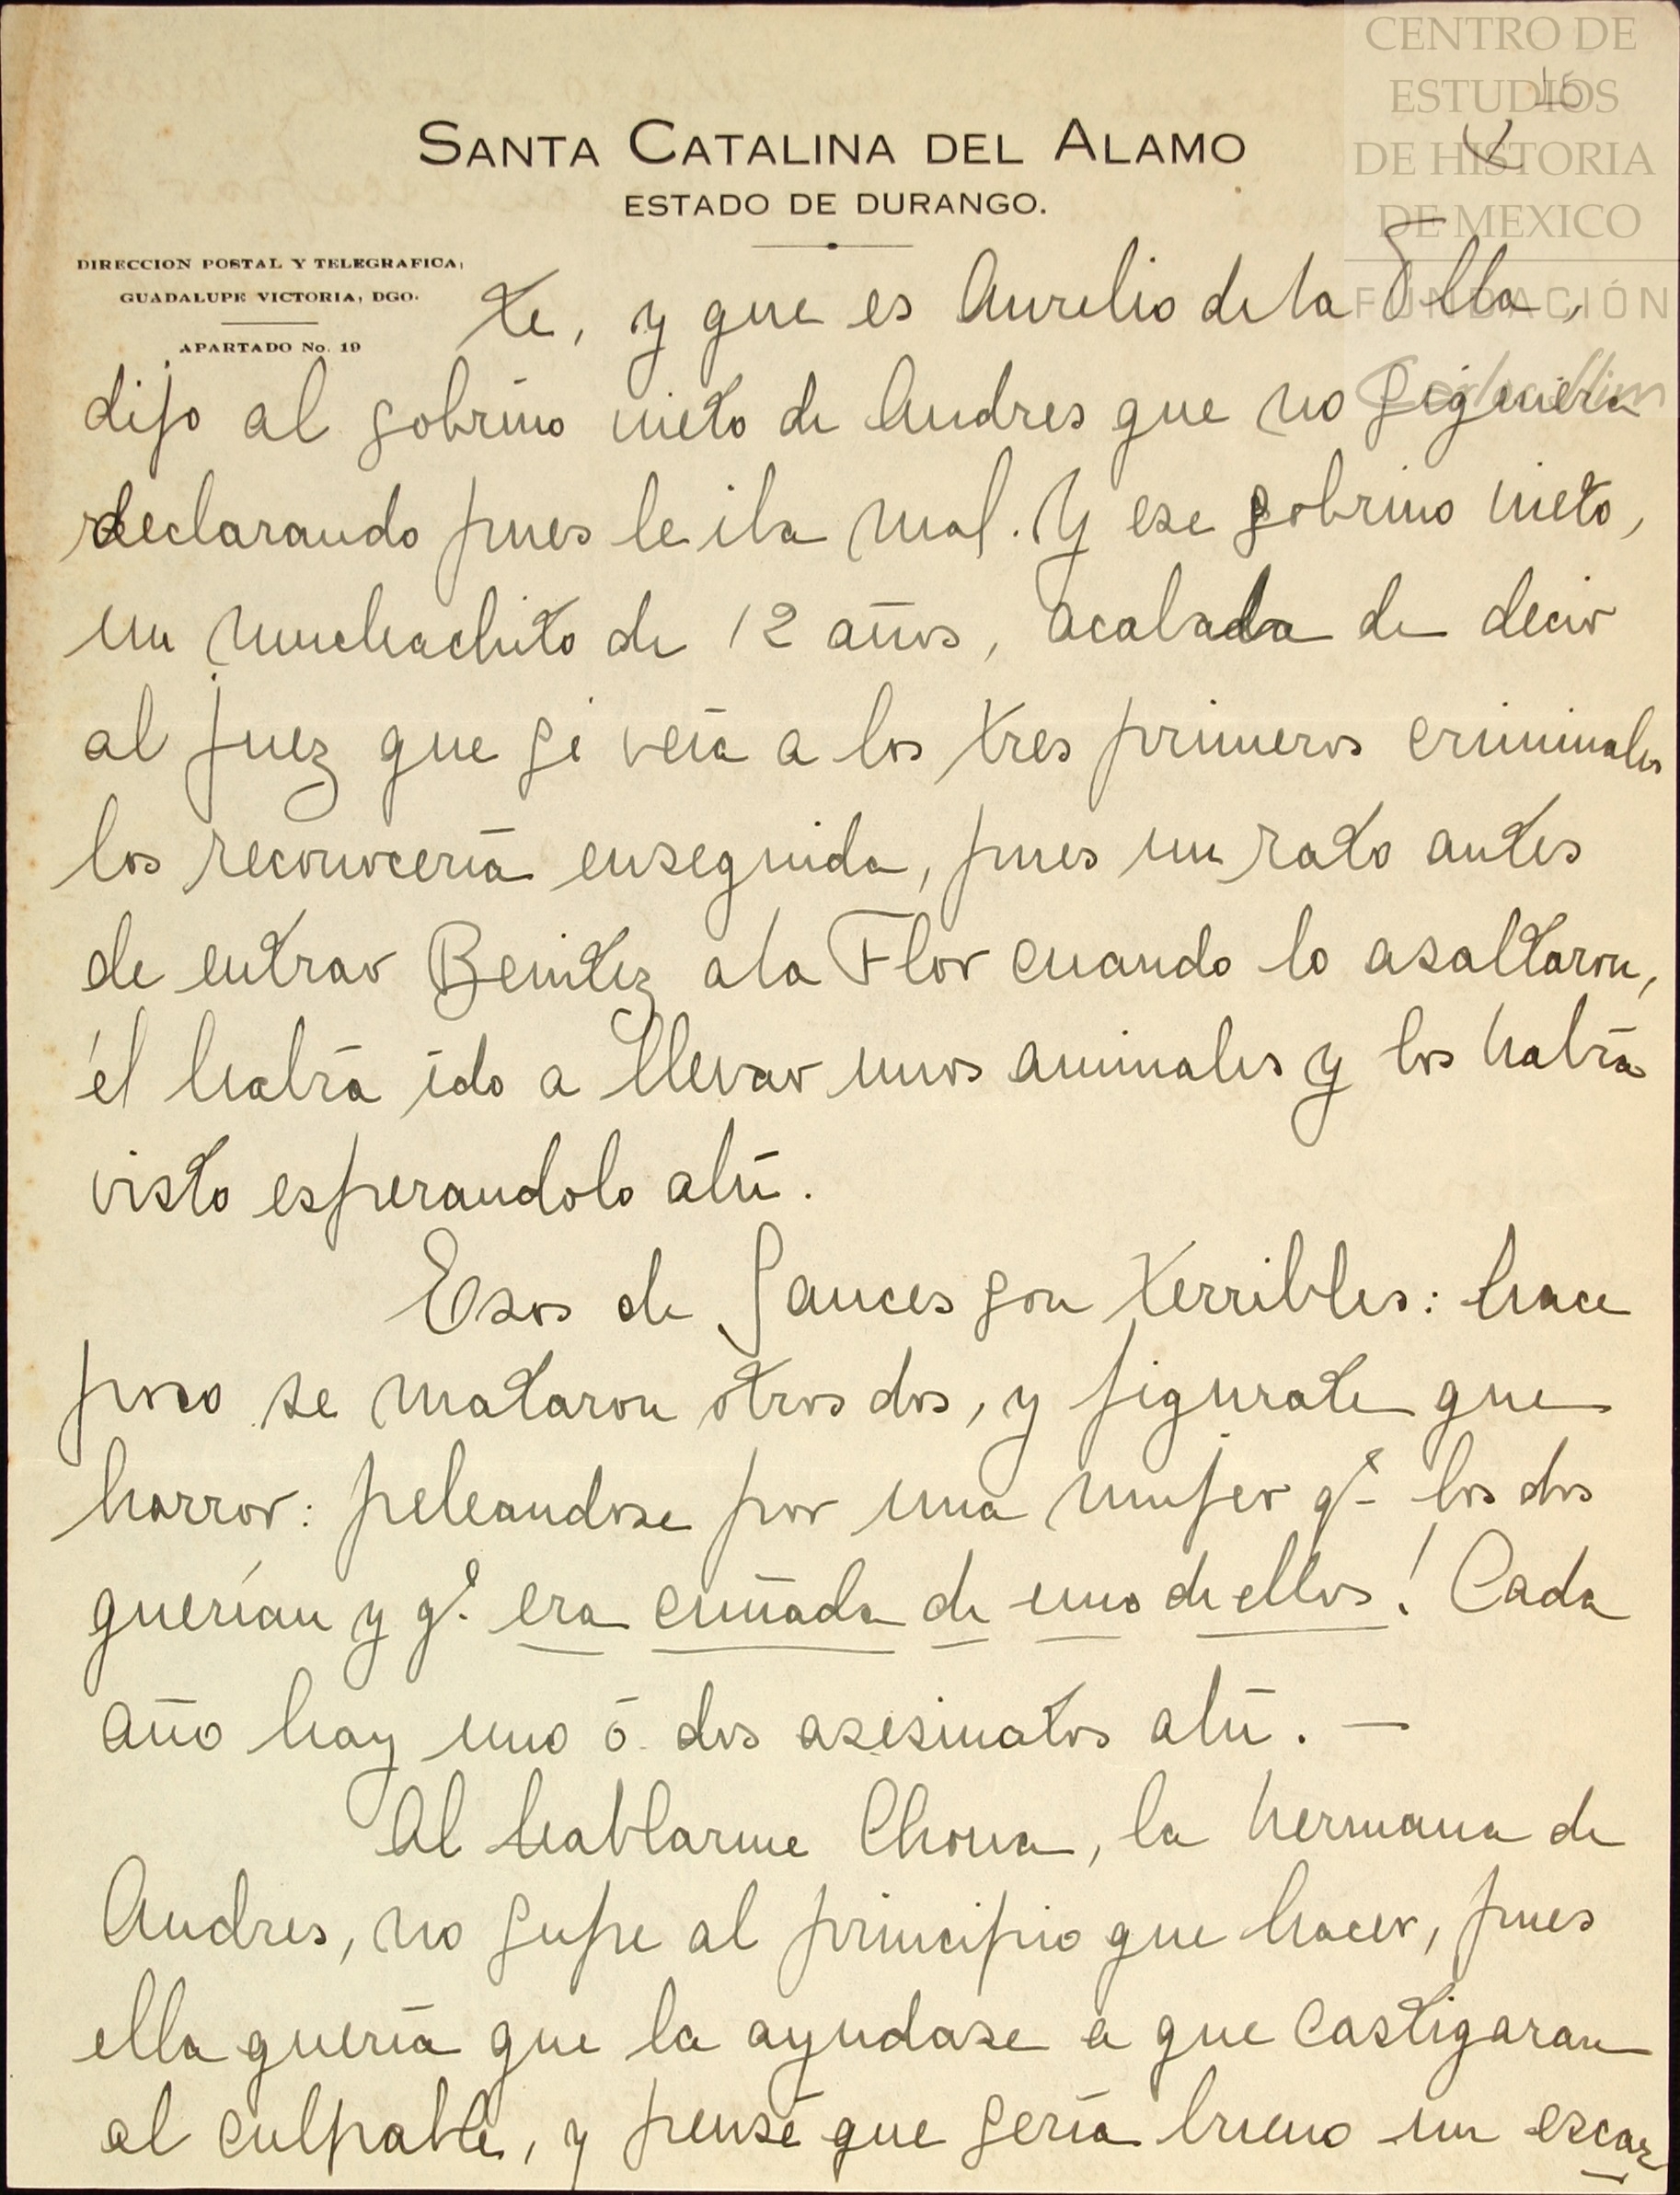 CENTRO DE
ESTUDIOS
DE HISTORIA
DE MEXICO
FUNDACIÓN
15
SANTA CATALINA DEL ALAMO
ESTADO DE DURANGO.
DIRECCION POSTAL Y TELEGRAFICA,
GUADALUPE VICTORIA, DGO.
APARTADO No. 19
te, y que es Aurelio de la Olla,
dijo al sobrino nieto de Andres que no siguiera
declarando pues le iba mal. Y ese sobrino nieto,
un muchachito de 12 años, acababa de decir
al juez que si veía a los tres primeros criminales
los reconocería enseguida, pues un rato antes
de entrar Benitez a la Flor cuando lo asaltaron,
él había ido a llevar unos animales y los había
visto esperandolo ahí.
Esos de Sauces son terribles: hace
poco se mataron otros dos, y figurate que
horror: peleandose por una mujer qe los dos
querían y qe era cuñada de uno de ellos! Cada
año hay uno ó dos asesinatos ahí. —
Al hablarme Chona, la hermana de
Andres, no supe al principio que hacer, pues
ella quería que la ayudase a que castigaran
al culpable, y pensé que sería bueno un escar